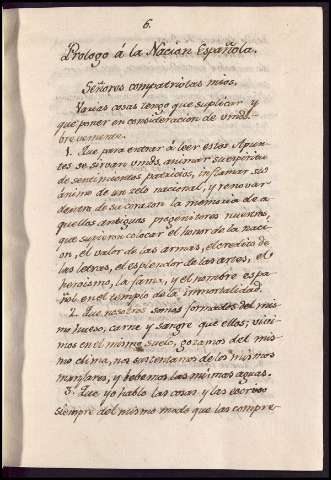 6.
Prologo á la Nacion Española.
Señores compatriotas mios.
Varias cosas tengo que suplicar y
que poner en consideración de vmds.
brevemente.
1. Que para entrar á leer estos Apun-
tes se sirvan vmds. animar su espiritu
de sentimientos patricios, inflamar su
ánimo de un zelo nacional, y renovar
dentro de su corazon la memoria de a-
quellos antiguos progenitores nuestros,
que supieron colocar el honor de la naci-
on, el valor de las armas, el credito de
las letras, el esplendor de las artes, el
heroismo, la fama, y el nombre espa-
ñol en el templo de la inmortalidad.
2. Que nosotros somos formados del mis-
mo hueso, carne y sangre que ellos; vivi-
mos en el mismo suelo, gozamos del mis-
mo clima, nos sustentamos de los mismos
manjares, y bebemos las mismas aguas.
3. Que yo hablo las cosas y las escribo
siempre del mismo modo que las compre-